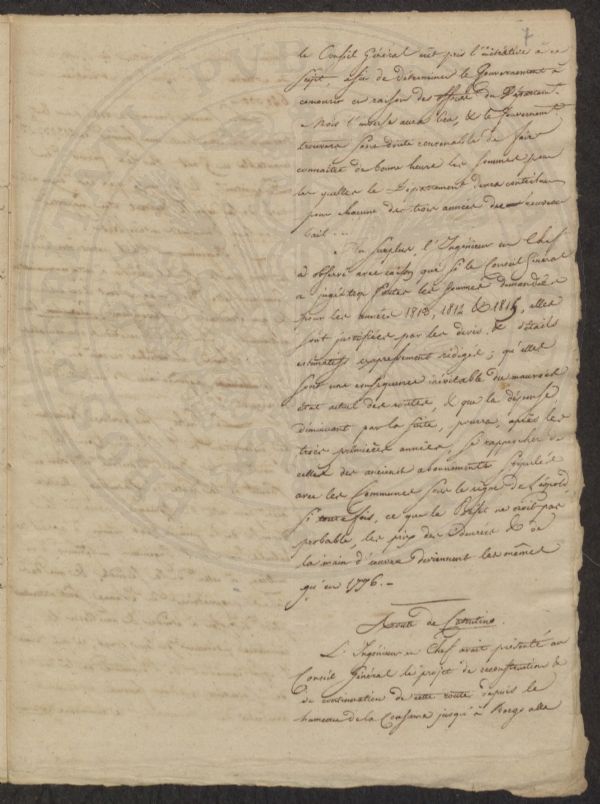 7
le Conseil Général eût pris l'initiative à ce
sujet, afin de déterminer le Gouvernement à
concourir en raison des offres du Départemt.
Mais l'inverse aura lieu, & le Gouvernemt.
trouvera sans doute convenable de faire
connaître de bonne heure les sommes pour
les quelles le Département devra contribuer
pour chacune des trois années de nouveau
bail.
Au surplus, l'Ingénieur en Chef
a observé avec raison que si le Conseil Général
a jugé fortes les sommes demandées
pour les années 1813, 1814 & 1815, elles
sont justifiées par les devis & détails
estimatifs expressément rédigés; qu'elles
sont une conséquence inévitable du mauvais
état actuel des routes, & que la dépense
diminuant par la suite, pourra, après les
trois premières années, se rapprocher de
celles des anciens abonnements stipulés
avec les Communes sous le règne de Léopold,
si toute fois, ce que le Préfet ne croit pas
probable, les prix des denrées & de
la main d'œuvre deviennent les mêmes
qu'en 1776.-
Route de Casentino.
L'Ingénieur en Chef avait présenté au
Conseil Général le projet de reconstruction &
de continuation de cette route depuis le
hameau de la Consuma jusqu'à Borgo alla